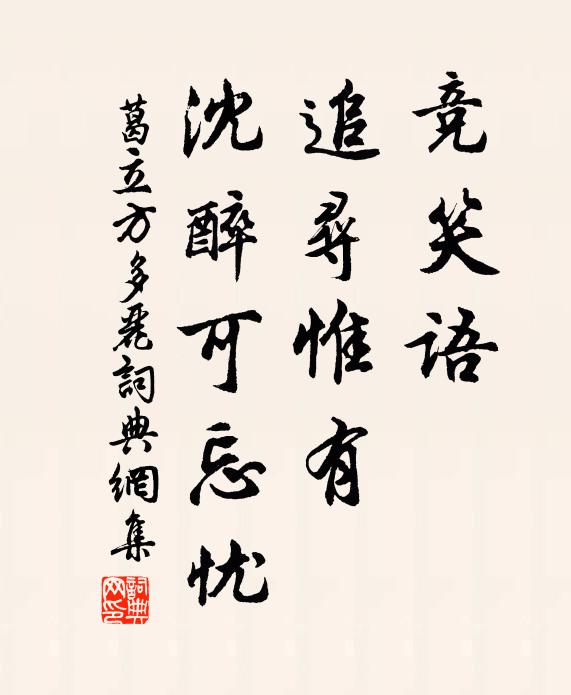 竞笑语
追寻惟有
沈醉可忘忧
葛立方多麗詞典網集
詞典网印